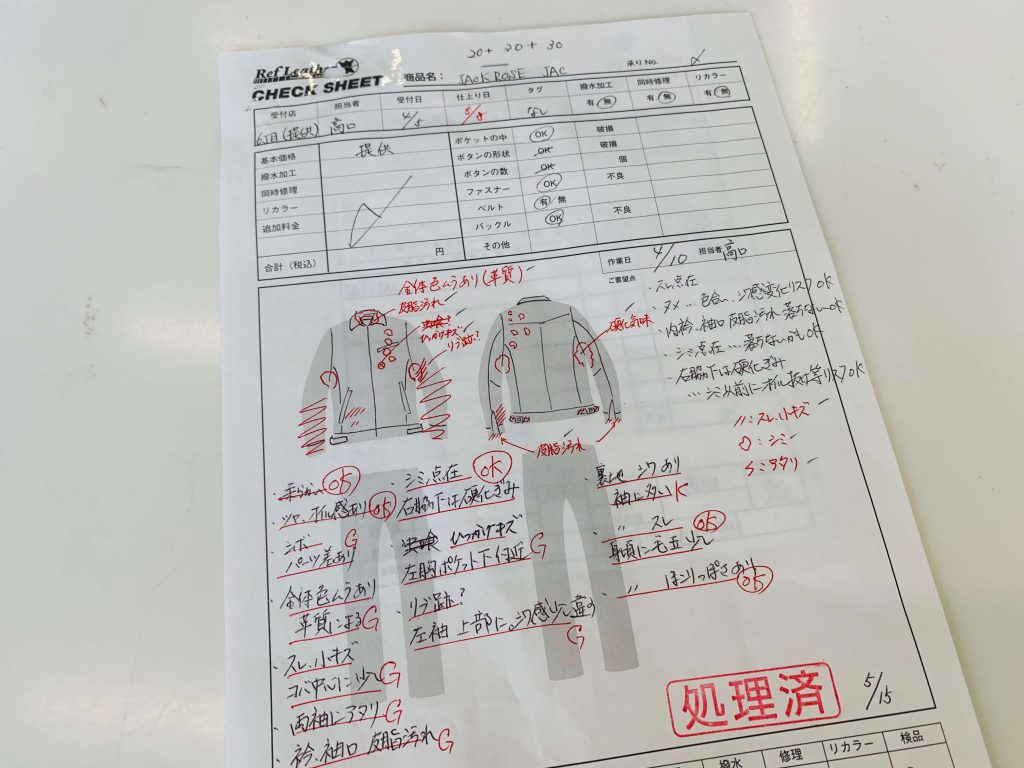 20+ 20+ 30
Ref Leather
CHECK SHEET
商品名: JACK ROSE JAC
承りNo.
受付店 担当者 受付日 仕上り日 タグ 撥水加工 同時修理 リカラー
6丁目(提供) 高口 4/5 5/8 なし 有/無 有/無 有/無
基本価格 提供
撥水加工
同時修理
リカラー
追加料金
合計(税込) 円
ポケットの中 OK 破損
ボタンの形状 OK 破損
ボタンの数 OK 個
ファスナー OK 不良
ベルト 有/無
バックル OK 不良
その他
作業日 4/10 担当者 高口
ご要望点
・スレ点在
・ヌメ…色合い、シワ感変化リスクOK
・内衿、袖口 皮脂汚れ 落ちないOK
・シミ点在…落ちないかもOK
・右脇下は硬化ぎみ
全体色ムラあり(革質)
皮脂汚れ
虫喰?
ひっかけキズ
リブ跡?
硬化気味
皮脂汚れ
//:スレ、小キズ
○:シミ
:アタリ
・柔らかい OK
・ツヤ、オイル感あり OK
・シボ G
パーツ差あり
・全体色ムラあり
革質による G
・スレ、小キズ
コバ中心に少し G
・両袖にアタリ G
・衿、袖口 皮脂汚れ G
・シミ点在 OK
・右脇下は硬化ぎみ
・虫喰 ひっかけキズ
左胸ポケット下付近 G
・リブ跡?
左袖 上部に。シワ感少し違う
G
・裏地 シワあり
袖に多い K
・〃 スレ OK
身頃に毛玉少し
・〃 ほこりっぽさあり
OK
処理済
5/15
撥水 修理 リカラー 検品